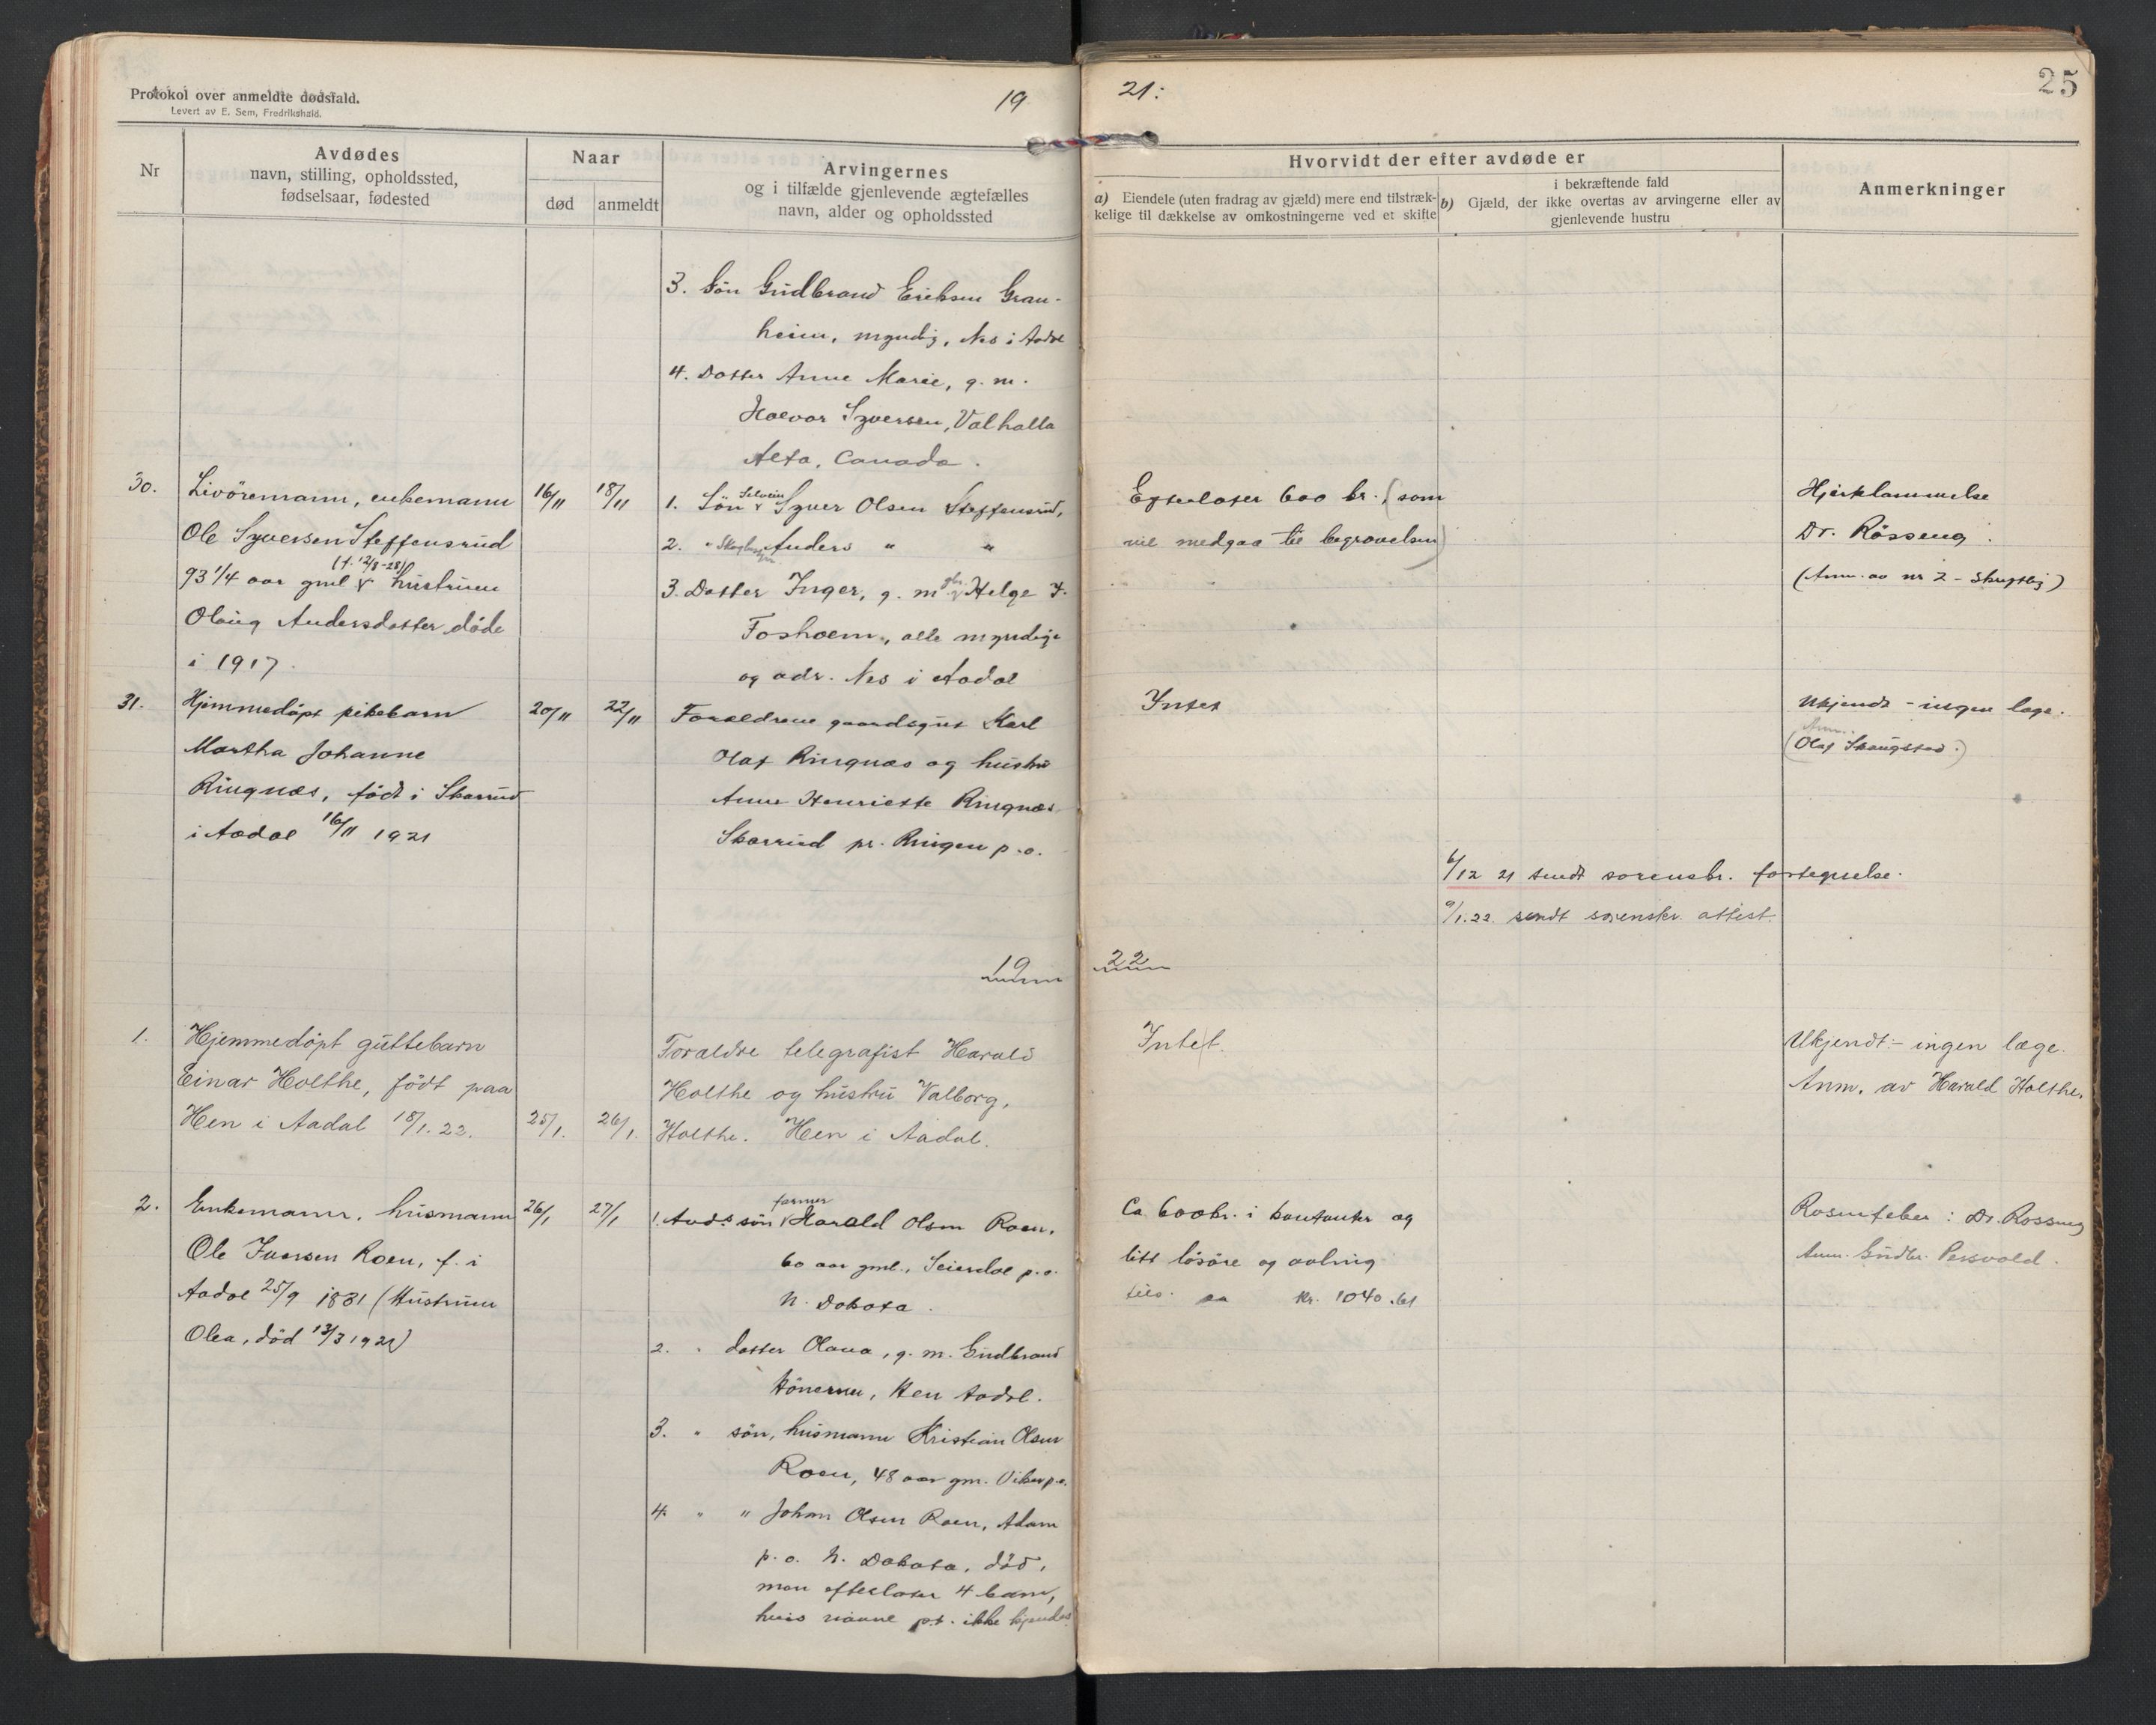 Protokol over anmeldte dødsfald.
Levert av E. Sem, Fredrikshald.
19 21:
25
Nr
Avdødes
navn, stilling, opholdssted,
fødselsaar, fødested
Naar
død anmeldt
Arvingernes
og i tilfælde gjenlevende ægtefælles
navn, alder og opholdssted
Hvorvidt der efter avdøde er
a) Eiendele (uten fradrag av gjæld) mere end tilstræk-
kelige til dækkelse av omkostningerne ved et skifte
i bekræftende fald
b) Gjæld, der ikke overtas av arvingerne eller av
gjenlevende hustru
Anmerkninger
3. Søn Gudbrand Eriksen Gran-
heim, myndig, Nes i Aadal
4. Datter Anne Marie, g. m.
Halvor Syversen, Valhalla
Alta, Canada.
30.
Livöremann, enkemann
Ole Syversen Steffensrud
(f. 12/8-28)
93 1/4 aar gml hustruen
Olaug Andersdatter døde
i 1917.
16/11
18/11
1. Sön Selveier Syver Olsen Steffensrud,
2. " Anders " "
3. Datter Inger, g. m. gbr. Helge
Foshaem, alle myndige
og adr. Nes i Aadal
Efterlater 600 kr. (som
vil medgaa til begravelsen)
Hjerklammelse
Dr. Rösseng.
(Anm. av nr 2 - skriftlig)
31.
Hjemmedöpt pikebarn
Martha Johanne
Ringnæs, födt i Skarrud
i Aadal 16/11 1921
20/11
22/11
Forældrene gaardsgut Karl
Olaf Ringnæs og hustru
Anne Henriette Ringnæs
Skarrud pr. Ringen p.o.
Intet
Ukjendt - ingen læge.
Anm.
(Olaf Skaugstad.)
6/12 21 sendt sorenskr. fortegnelse.
9/1.22. sendt sorenskr. attest.
19 22
1.
Hjemmedöpt guttebarn
Einar Holthe, födt paa
Hen i Aadal 18/1.22.
25/1.
26/1.
Foraldre telegrafist Harald
Holthe og hustru Valborg,
Holthe. Hen i Aadal.
Intet.
Ukjendt - ingen læge.
Anm. av Harald Holthe.
2.
Enkemann, husmann
Ole Iversen Roen, f. i
Aadal 25/9 1831 (Hustruen
Olea, död 13/3 1921)
26/1
27/1
1. Avd.s sön farmer Harald Olsen Roen,
60 aar gml., p.o.
N. Dakota.
2. " datter Olava, g. m. Gudbrand
Hönernen, Hen Aadal.
3. " sön, husmann Kristian Olsen
Roen, 48 aar gm. Viker p.o.
4. " " Johan Olsen Roen, Adam
p.o. N. Dakota, död,
men efterlater 4 barn,
hvis navne p.t. ikke kjendes.
Ca 600 kr. i kontanter og
litt lösöre og avling
tils. ca Kr. 1040.61
Rosenfeber: Dr. Rosseng
Anm. Gudbr. Persvold.